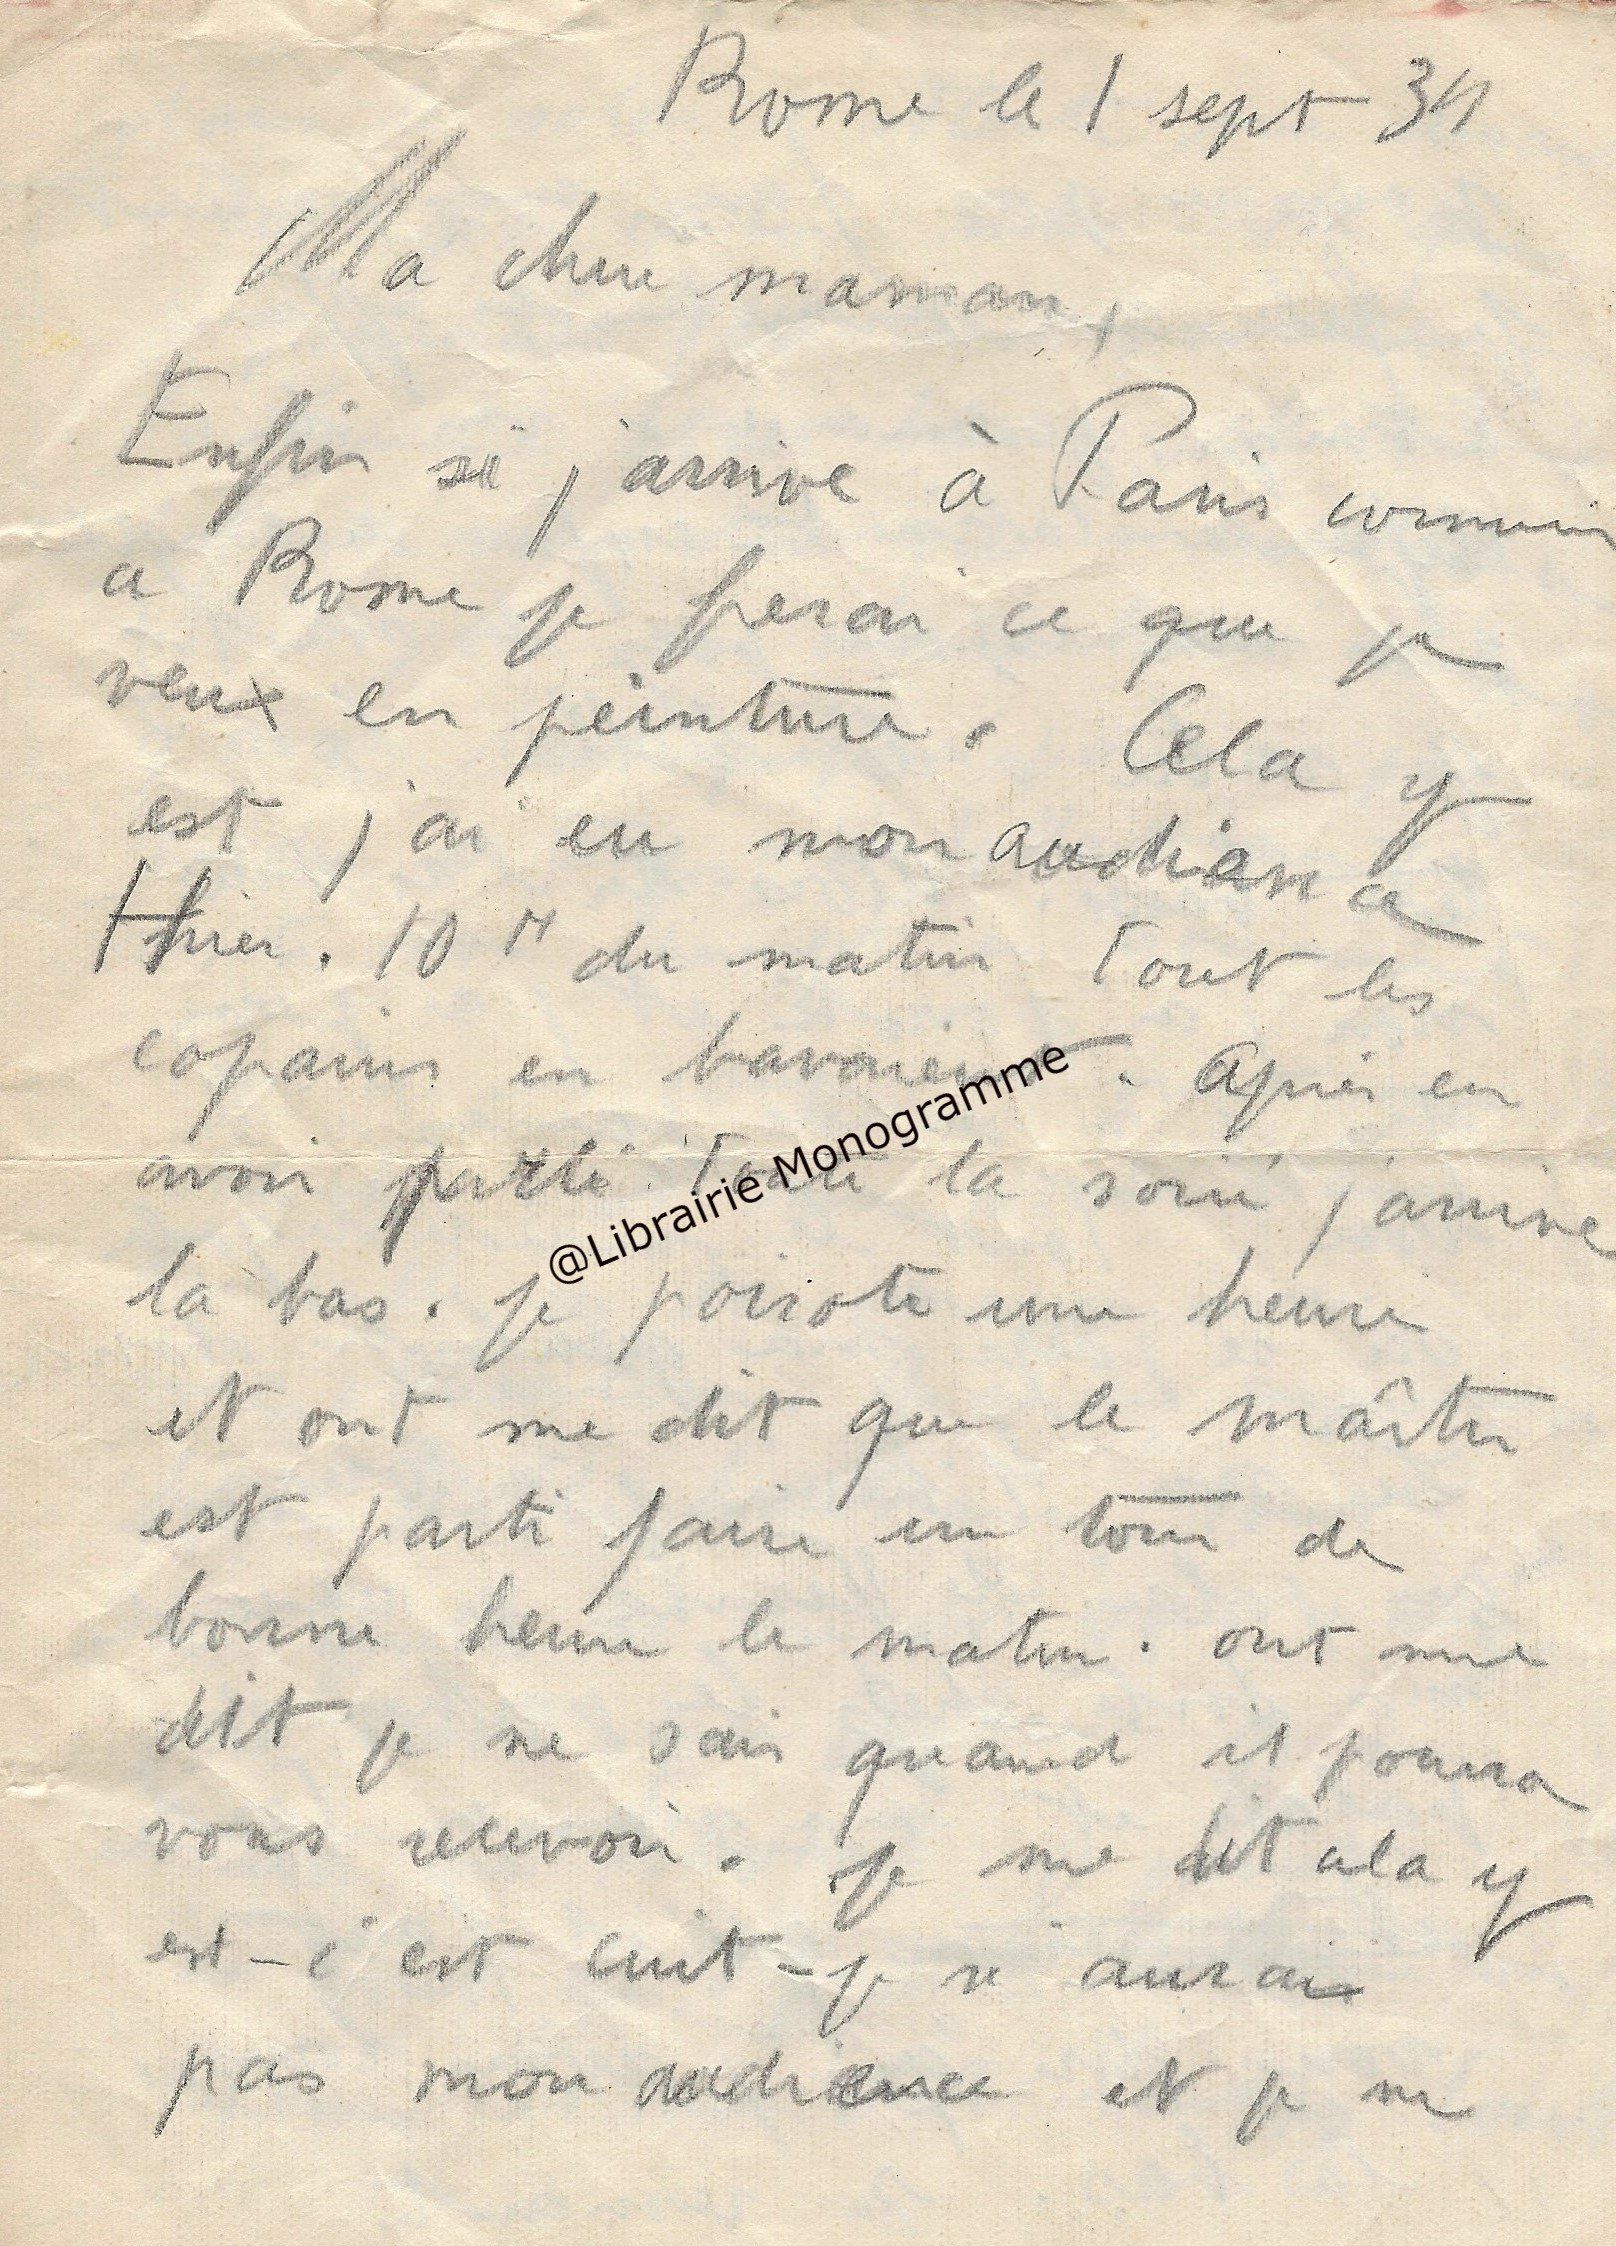 Rome le 1 sept 34
Ma chere maman,
Enfin si j'arrive à Paris comme
a Rome je ferai ce que je
veux en peinture. Cela y
est j'ai eu mon audiance
Hier. 10 H du matin Tout les
copains en bavaient. Après en
avoir parlé Toute la soiré j'arrive
la bas. je poirote une heure
et ont me dit que le maître
est parti faire un tour de
bonne heure le matin. ont me
dit je ne sais quand il pourra
vous recevoir. je me dit cela y
est - c'est cuit - je n'aurais
pas mon audience et je me
@Librairie Monogramme